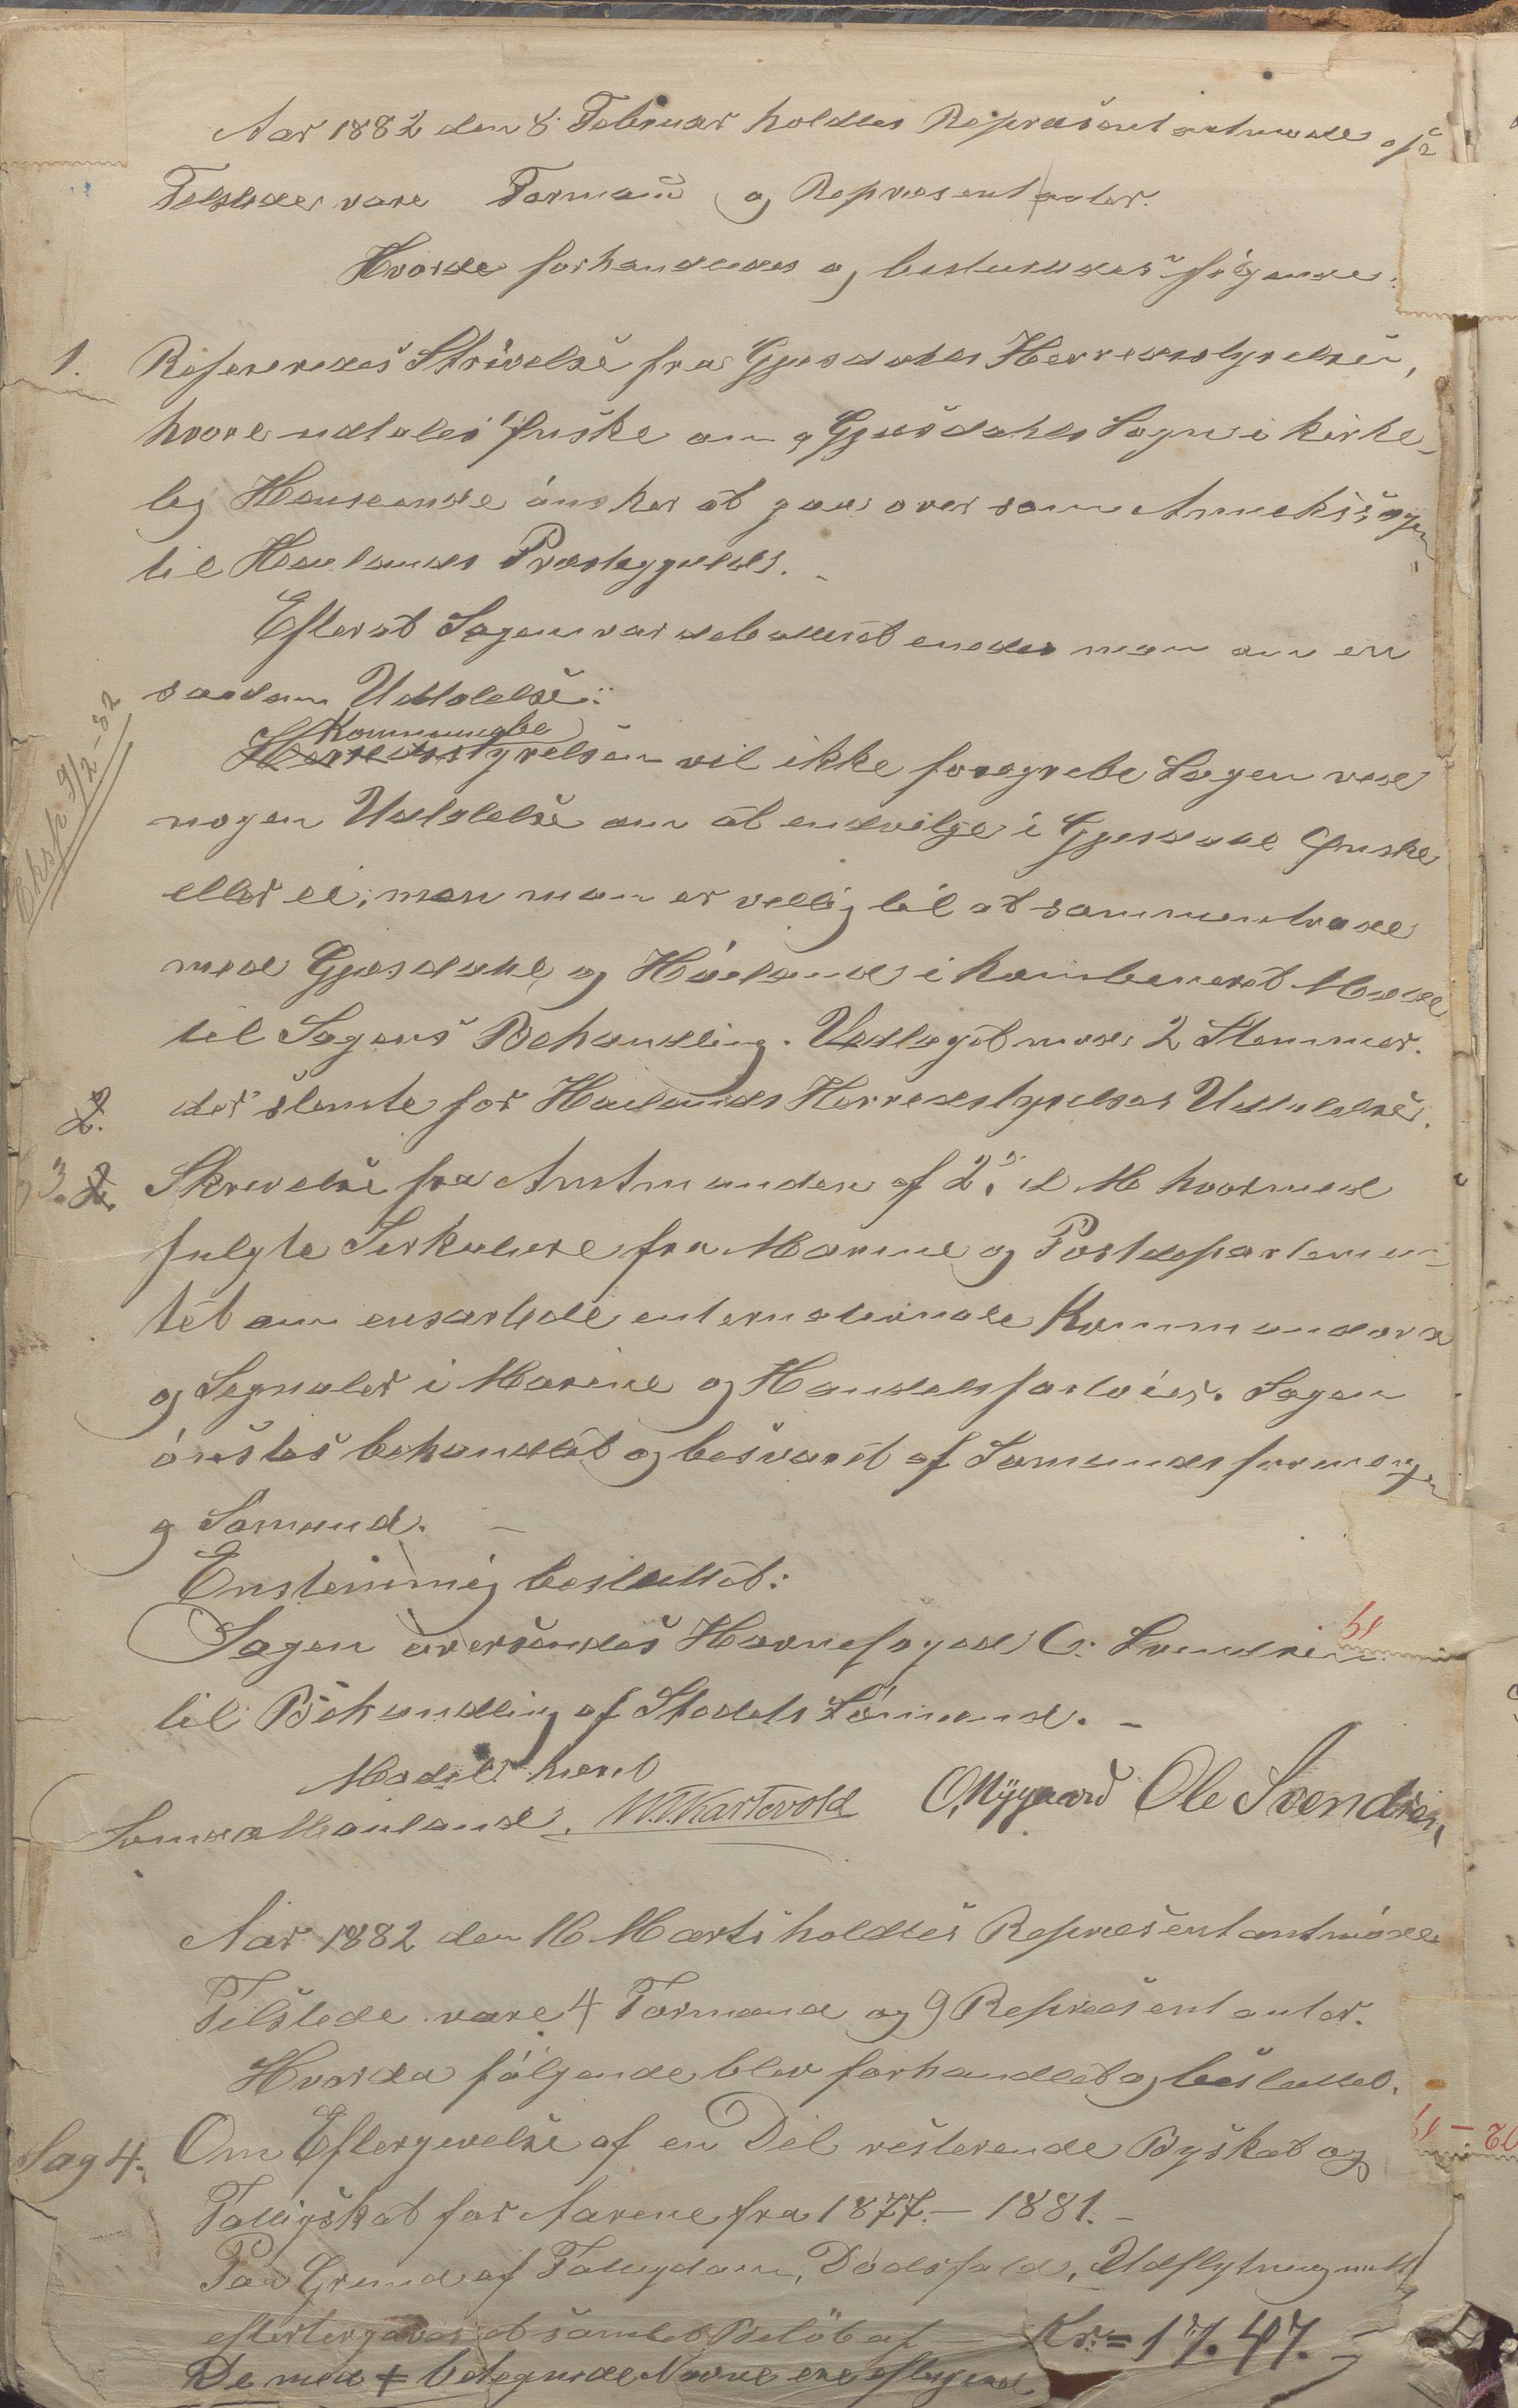 Aar 1882 den 8 Februar holdtes Repræsentantmøde
Tilstede vare Formænd og Repræsentanter.
Hvorda forhandledes og besluttedes følgende:
1. Refereredes Skrivelse fra Gjesdahls Herredsstyrelse,
hvori udtales Ønske om Gjesdahls Sogn i kirke-
lig Henseende ønsker at gaa over som Annekssogn
til Haalands Præstegjeld. -
Efterat Sagen var debatteret enedes man om en
saadan Udtalelse:
Kommunebe
Herredsstyrelsen vil ikke foregribe Sagen ved
nogen Udtalelse om at indvilge i Gjesdahl Ønske
eller ei, men man er villig til at sammentræde
med Gjesdahl og Høiland i kombineret Møde
til Sagens Behandling. Vedtaget mod 2 Stemmer.
2. der stemte for Høilands Herredstyrelses Udtalelse.
3. 2. Skrivelse fra Amtmanden af 2. d M hvormed
fulgte Sirkulære fra Marine og Postdepartemen-
tet om ensartede internationale Kommandoord
og Signaler i Marine og Handelsfartøier. Sagen
ønskes behandlet og besvaret af Sømandsforeninger
og Sømænd. -
Enstemmig besluttet:
Sagen oversendes Havnefoged O. Svendsen
til Behandling af Stedets Sømænd. -
Mødet hævet
M. T. Kartevold O. Nygaard Ole Svendsen,
Aar 1882 den 16 Marts holdtes Repræsentantmøde
Tilstede vare 4 Formænd og 9 Repræsentanter.
Hvorda følgende blev forhandlet og besluttet.
Sag 4. Om Eftergivelse af en Del resterende Byskat og
Fattigskat for Aarene fra 1877. - 1881. -
Paa Grund af Fattigdom, Dødsfald, Udflytning m.
eftergaves et samlet Beløb af - Kr. = 17.47.
De med ‡ betegnede Navne ere eftergivne
Eksp 9/2-82